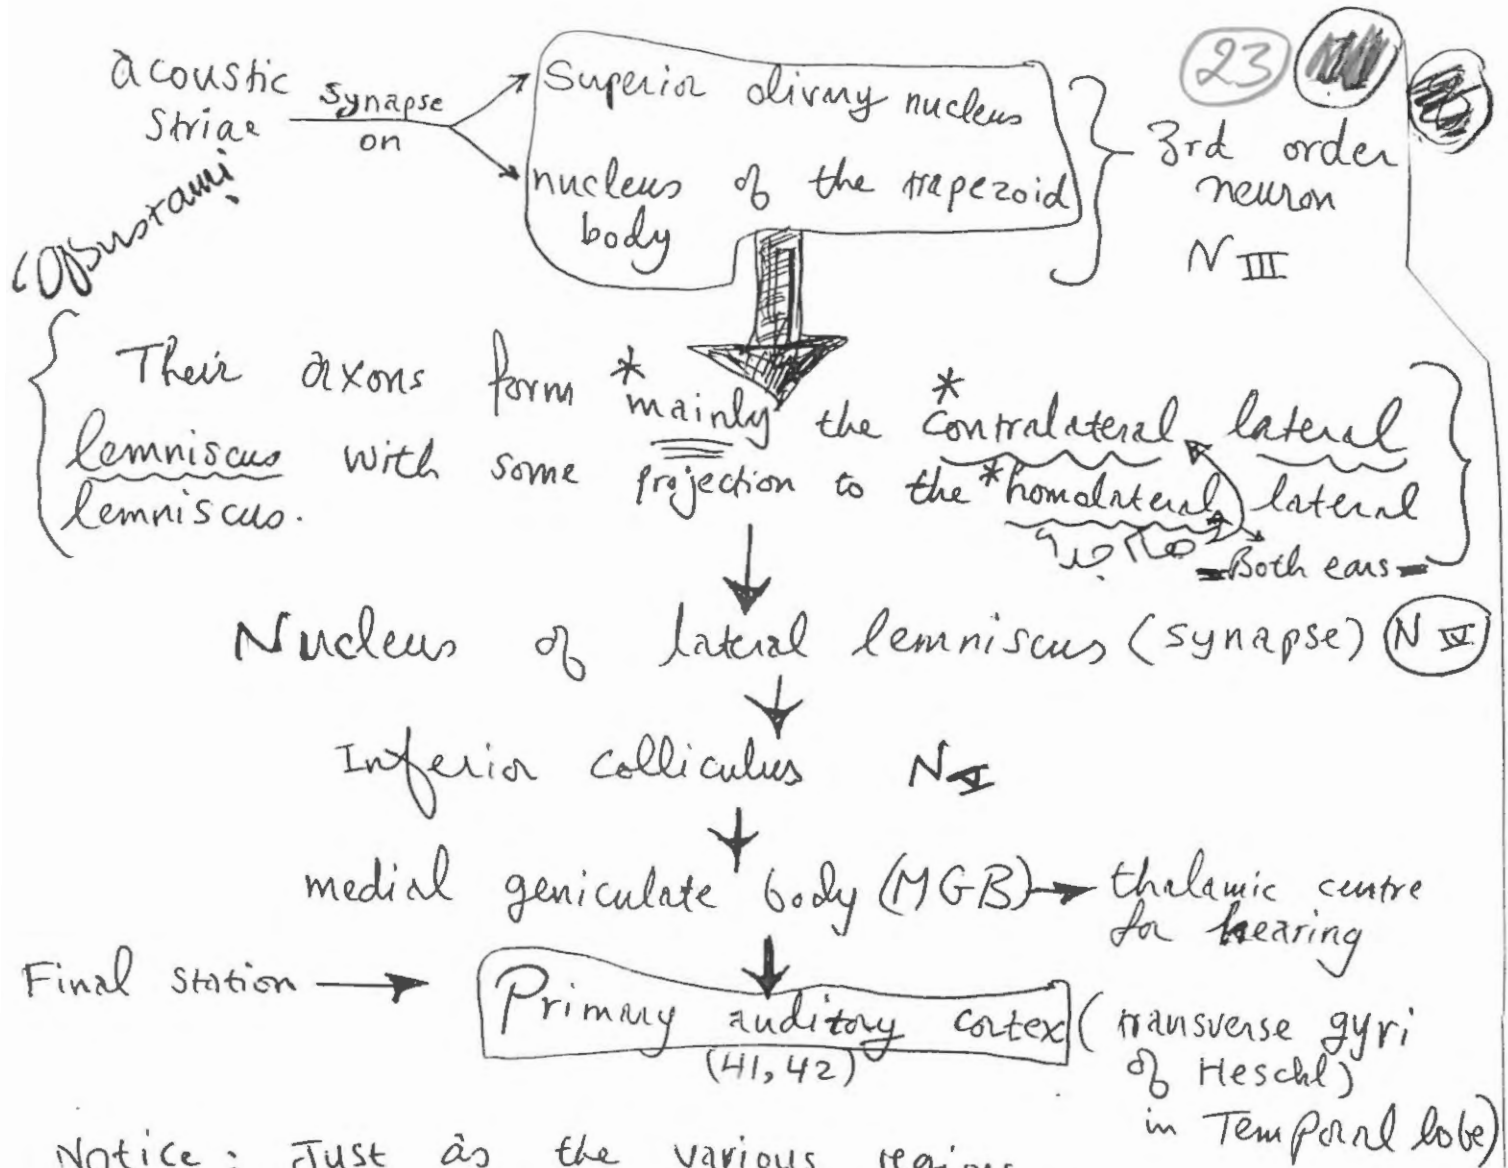 23
acoustic
striae
Synapse
on
Superior olivary nucleus
nucleus of the trapezoid
body
3rd order
neuron
N III
Their axons form *mainly the *contralateral lateral
lemniscus with some projection to the *homolateral lateral
lemniscus.
Both ears
Nucleus of lateral lemniscus (synapse) N IV
Inferior colliculus N V
medial geniculate body (MGB) → thalamic centre
for hearing
Final station → Primary auditory cortex (transverse gyri
(41, 42)
of Heschl)
in Temporal lobe)
Notice: Just as the various regions